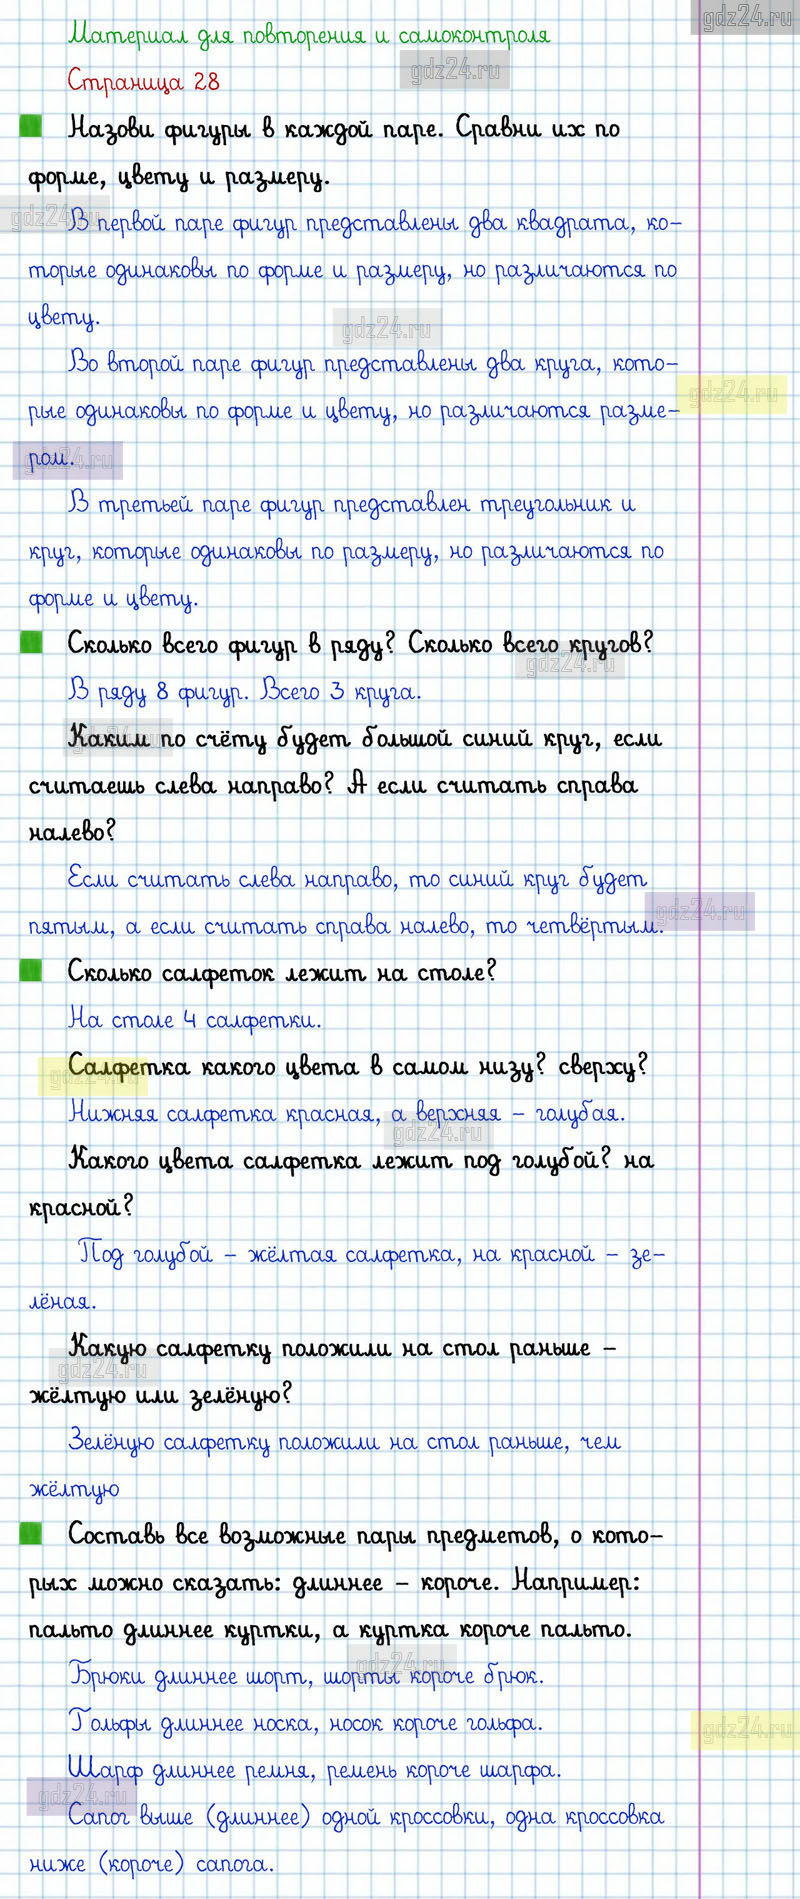 gdz24.ru
Материал для повторения и самоконтроля
Страница 28
gdz24.ru
Назови фигуры в каждой паре. Сравни их по
форме, цвету и размеру.
gdz24.ru
В первой паре фигур представлены два квадрата, ко-
торые одинаковы по форме и размеру, но различаются по
цвету.
gdz24.ru
Во второй паре фигур представлены два круга, кото-
gdz24.ru
рые одинаковы по форме и цвету, но различаются разме-
ром.
gdz24.ru
В третьей паре фигур представлен треугольник и
круг, которые одинаковы по размеру, но различаются по
форме и цвету.
Сколько всего фигур в ряду? Сколько всего кругов?
gdz24.ru
В ряду 8 фигур. Всего 3 круга.
Каким по счёту будет большой синий круг, если
gdz24.ru
считаешь слева направо? А если считать справа
налево?
Если считать слева направо, то синий круг будет
gdz24.ru
пятым, а если считать справа налево, то четвёртым.
Сколько салфеток лежит на столе?
На столе 4 салфетки.
Салфетка какого цвета в самом низу? сверху?
gdz24.ru
Нижняя салфетка красная, а верхняя – голубая.
gdz24.ru
Какого цвета салфетка лежит под голубой? на
красной?
Под голубой – жёлтая салфетка, на красной – зе-
лёная.
Какую салфетку положили на стол раньше –
gdz24.ru
жёлтую или зелёную?
Зелёную салфетку положили на стол раньше, чем
жёлтую
Составь все возможные пары предметов, о кото-
рых можно сказать: длиннее – короче. Например:
пальто длиннее куртки, а куртка короче пальто.
gdz24.ru
Брюки длиннее шорт, шорты короче брюк.
Гольфы длиннее носка, носок короче гольфа.
gdz24.ru
Шарф длиннее ремня, ремень короче шарфа.
gdz24.ru
Сапог выше (длиннее) одной кроссовки, одна кроссовка
ниже (короче) сапога.